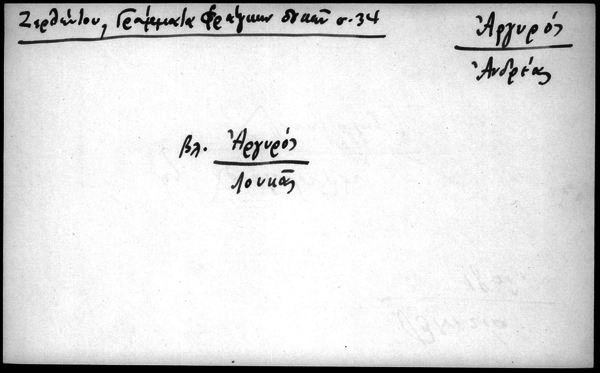 Ζερλέντου, Γράμματα Φράγκων δουκῶν σ. 34
Ἀργυρός
Ἀνδρέας
βλ. Ἀργυρός
Λουκᾶς